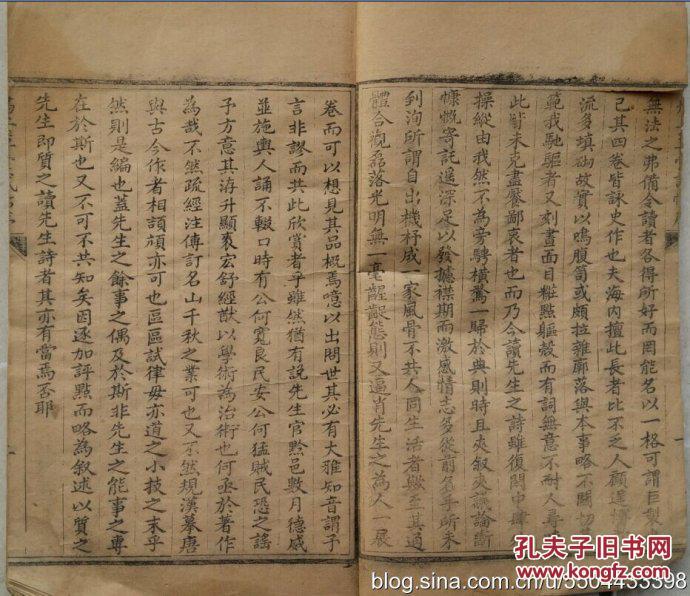 無法之弗備令讀者各得所好而罔能名以一格可謂巨製
已其四卷皆詠史作也夫海內擅此長者比不乏人顧逞
流多填砌故實以鳴腹笥或頗拉雜廓落與本事略不關切
範我馳驅者又刻畫面目粧點軀殼而有詞無意不耐人尋
此皆未克盡饜鄙衷者也而乃今讀先生之詩雖復閎中肆
操縱由我然不為旁騖橫驚一歸於典則時且夾敘夾議論斷
慷慨寄託遥深足以發攄襟期而激感情志多從前名手所未
到洵所謂自出機杼成一家風骨不共人同生活者歟至其通
體合觀磊落光明無一毫齷齪態則又逼肖先生之為人一展
卷而可以想見其品概焉噫以出問世其必有大雅知音謂予
言非謬而共此欣賞者乎雖然猶有說先生官黔邑數月德威
並施輿人誦不輟口時有公何寬良民安公何猛賊民恐之謠
予方意其洊升顯要宏舒經猷以學術為治術也何亟於著作
為哉不然疏經注傳訂名山千秋之業可也又不然規漢摹唐
與古今作者相頡頏亦可也區區試律毋亦道之小技之末乎
然則是編也蓋先生之餘事之偶及於斯非先生之能事之專
在於斯也又不可不共知矣因逐加評點而略為叙述以質之
先生即質之讀先生詩者其亦有當焉否耶
孔夫子旧书网
www.kongfz.com
blog.sina.com.cn/u/5504433598